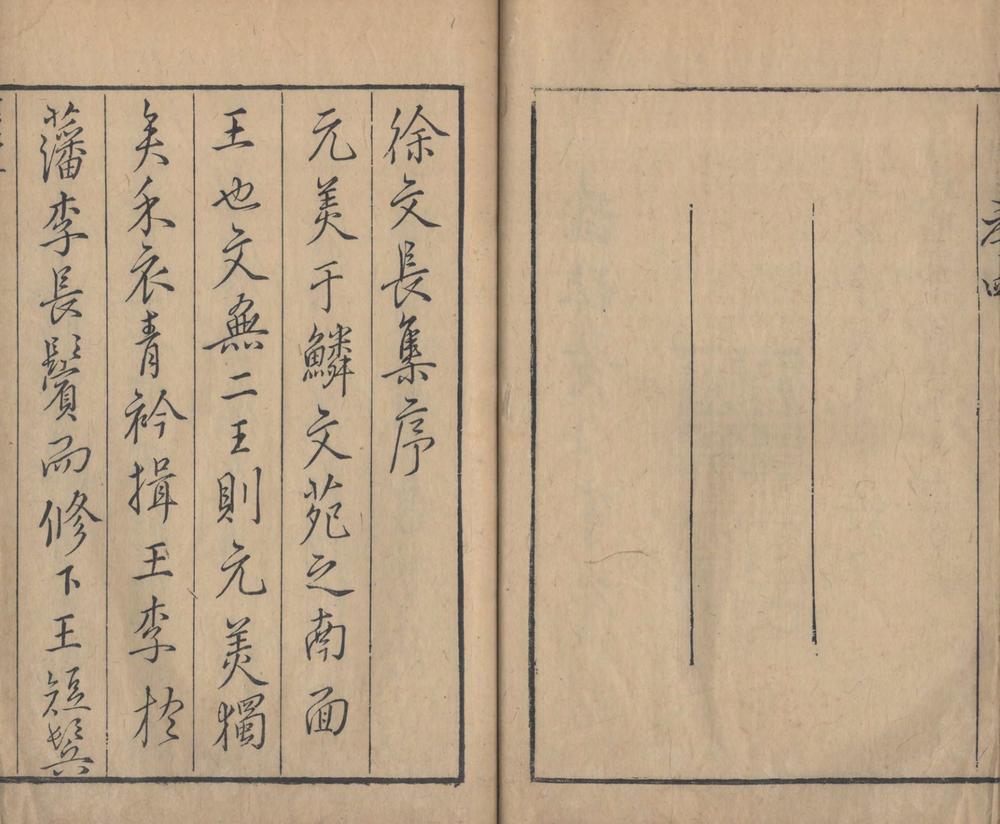 徐文長集序
元美于鱗文苑之南面
王也文無二王則元美獨
矣余衣青衿揖王李於
藩李長鬢而修下王短鬂